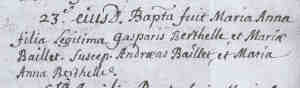 23ᵃ eiusd. Bapta fuit Maria Anna
filia Legitima Gasparis Berthelle et Mariæ
Baillet. Suscep. Andræas Baillet et Maria
Anna Berthelle.